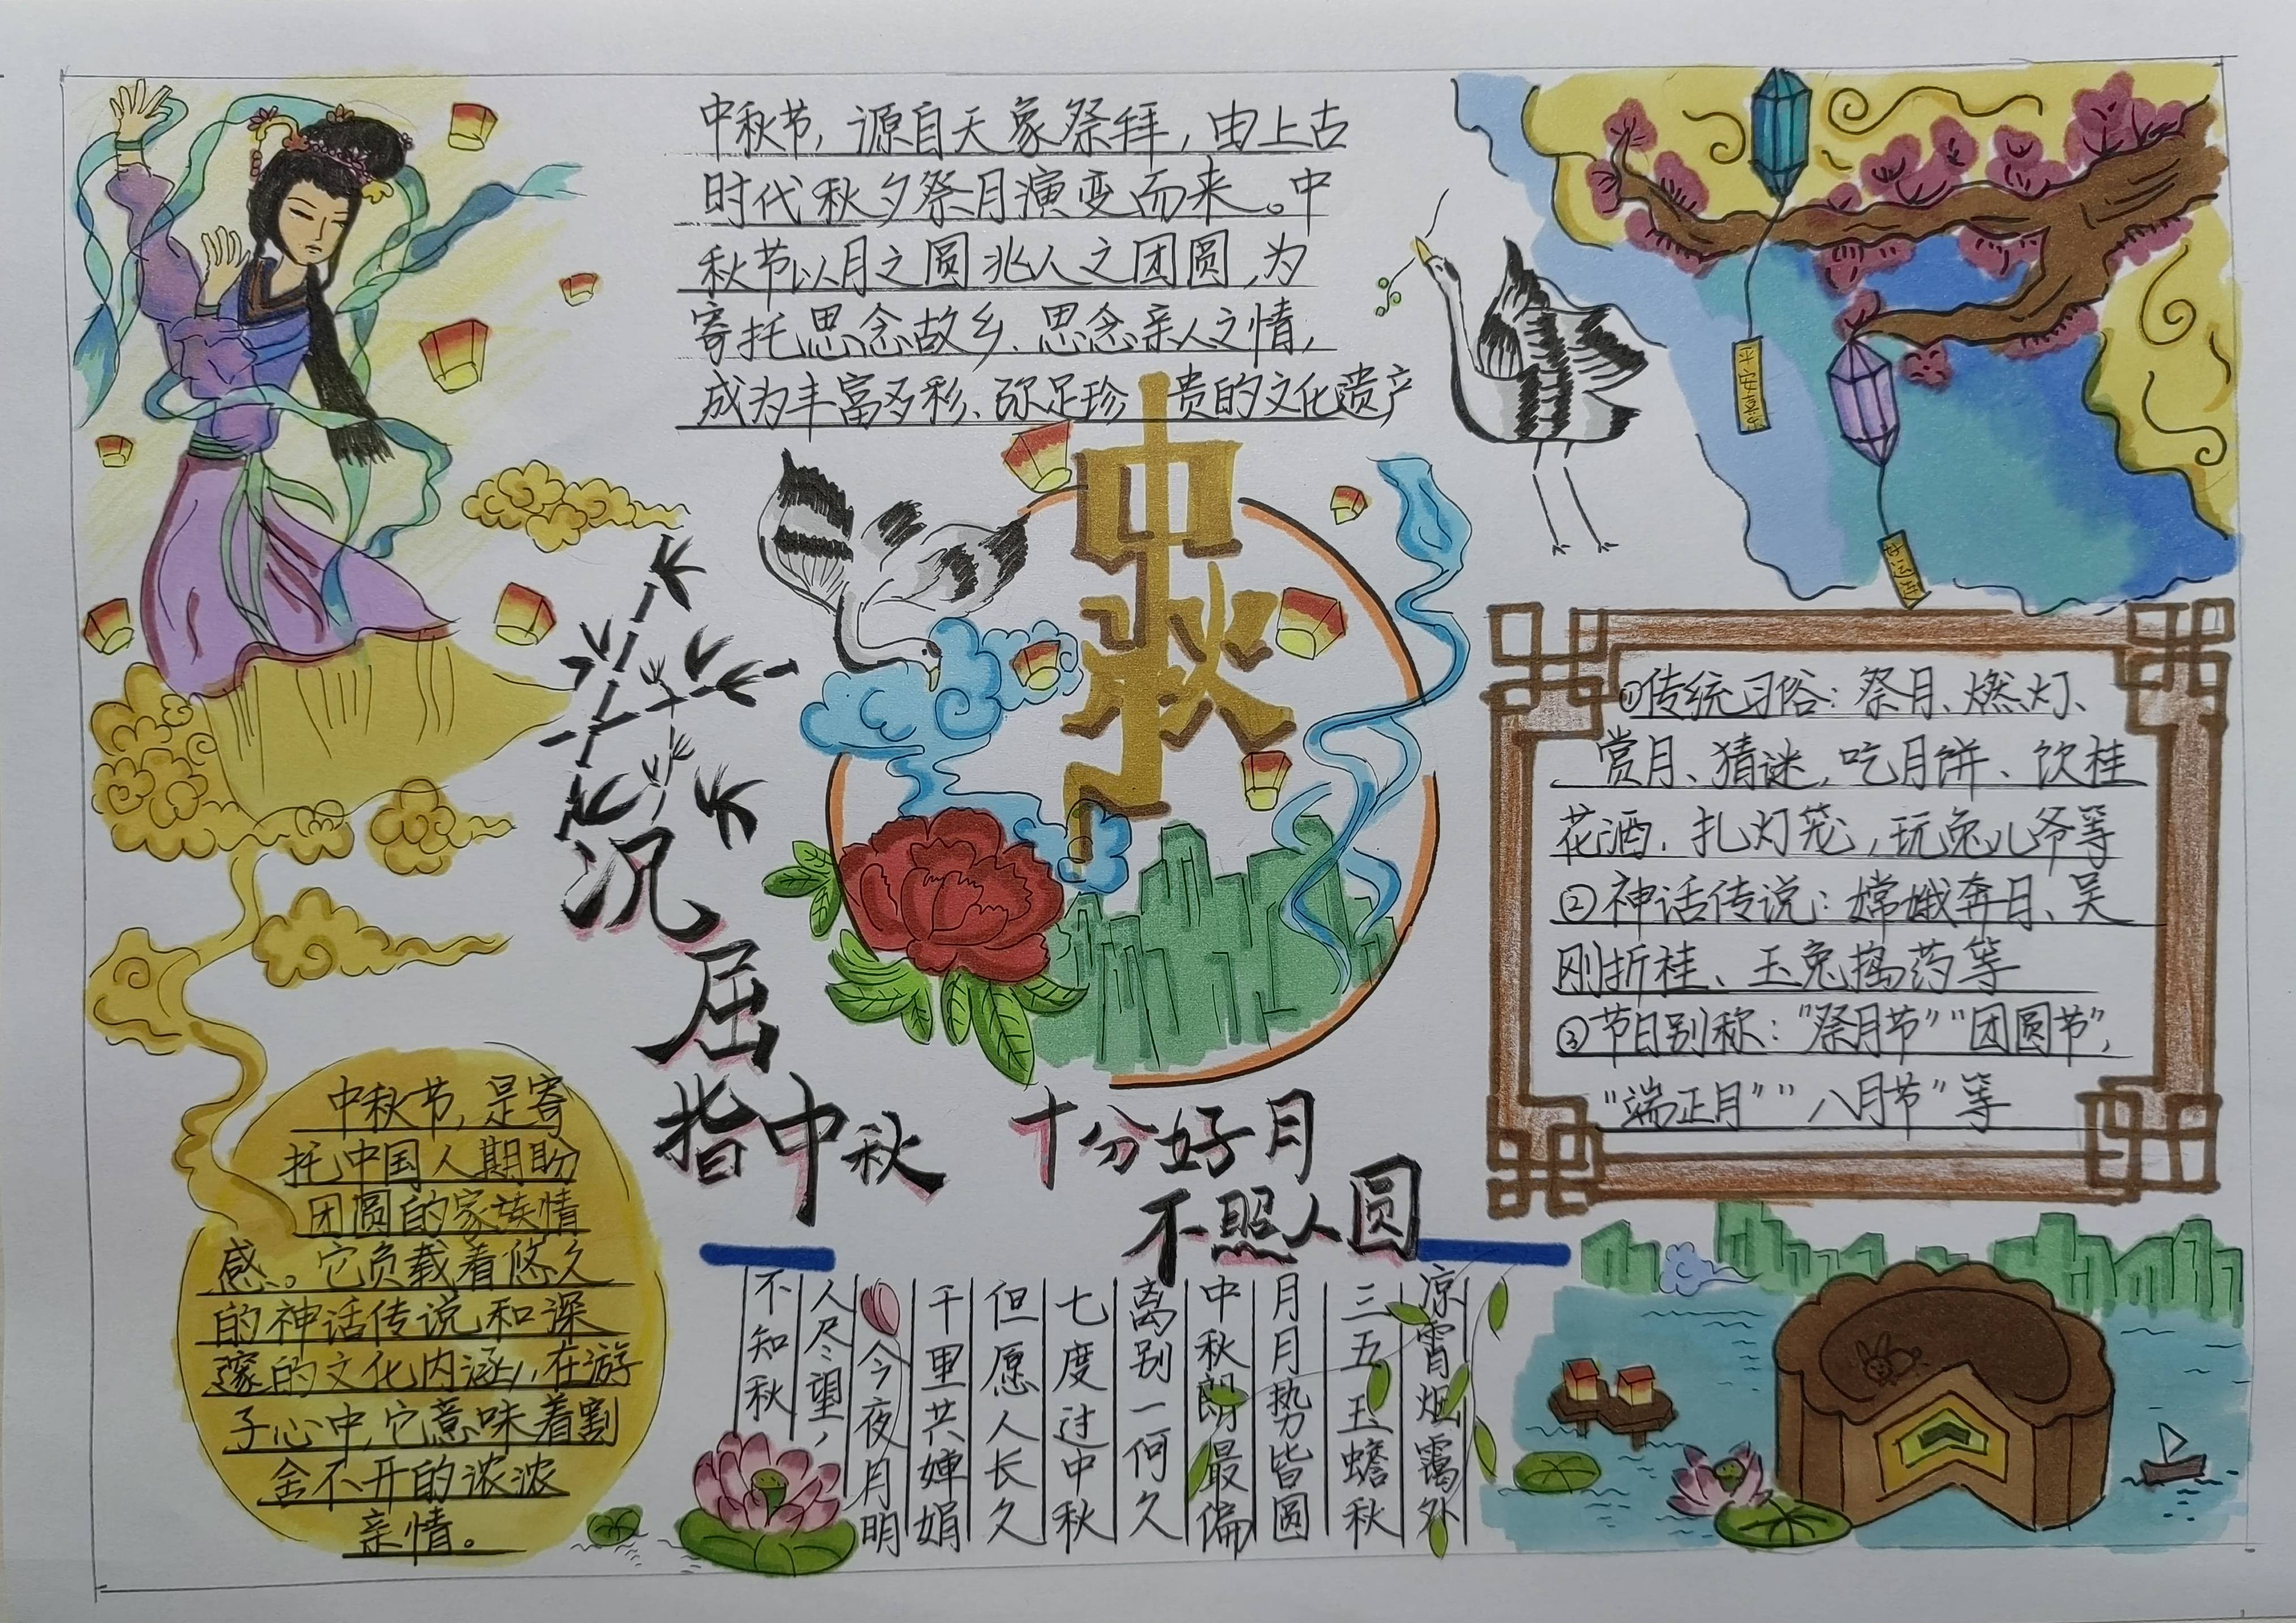 中秋节，源自天象祭拜，由上古
时代秋夕祭月演变而来。中
秋节以月之圆兆人之团圆，为
寄托思念故乡、思念亲人之情，
成为丰富多彩、弥足珍贵的文化遗产
平安喜
中秋
①传统习俗：祭月、燃灯、
赏月、猜谜，吃月饼、饮桂
花酒，扎灯笼，玩兔儿爷等
②神话传说：嫦娥奔月、吴
刚折桂、玉兔捣药等
③节日别称：“祭月节”“团圆节”，
“端正月”“八月节”等
沉屈指中秋
十分好月
不照人圆
中秋节，是寄
托中国人期盼
团圆的家族情
感。它负载着悠久
的神话传说和深
邃的文化内涵，在游
子心中，它意味着割
舍不开的浓浓
亲情。
凉霄烟霭外
三五玉蟾秋
月月势皆圆
中秋朗最偏
离别一何久
七度过中秋
但愿人长久
千里共婵娟
今夜月明
人尽望，
不知秋